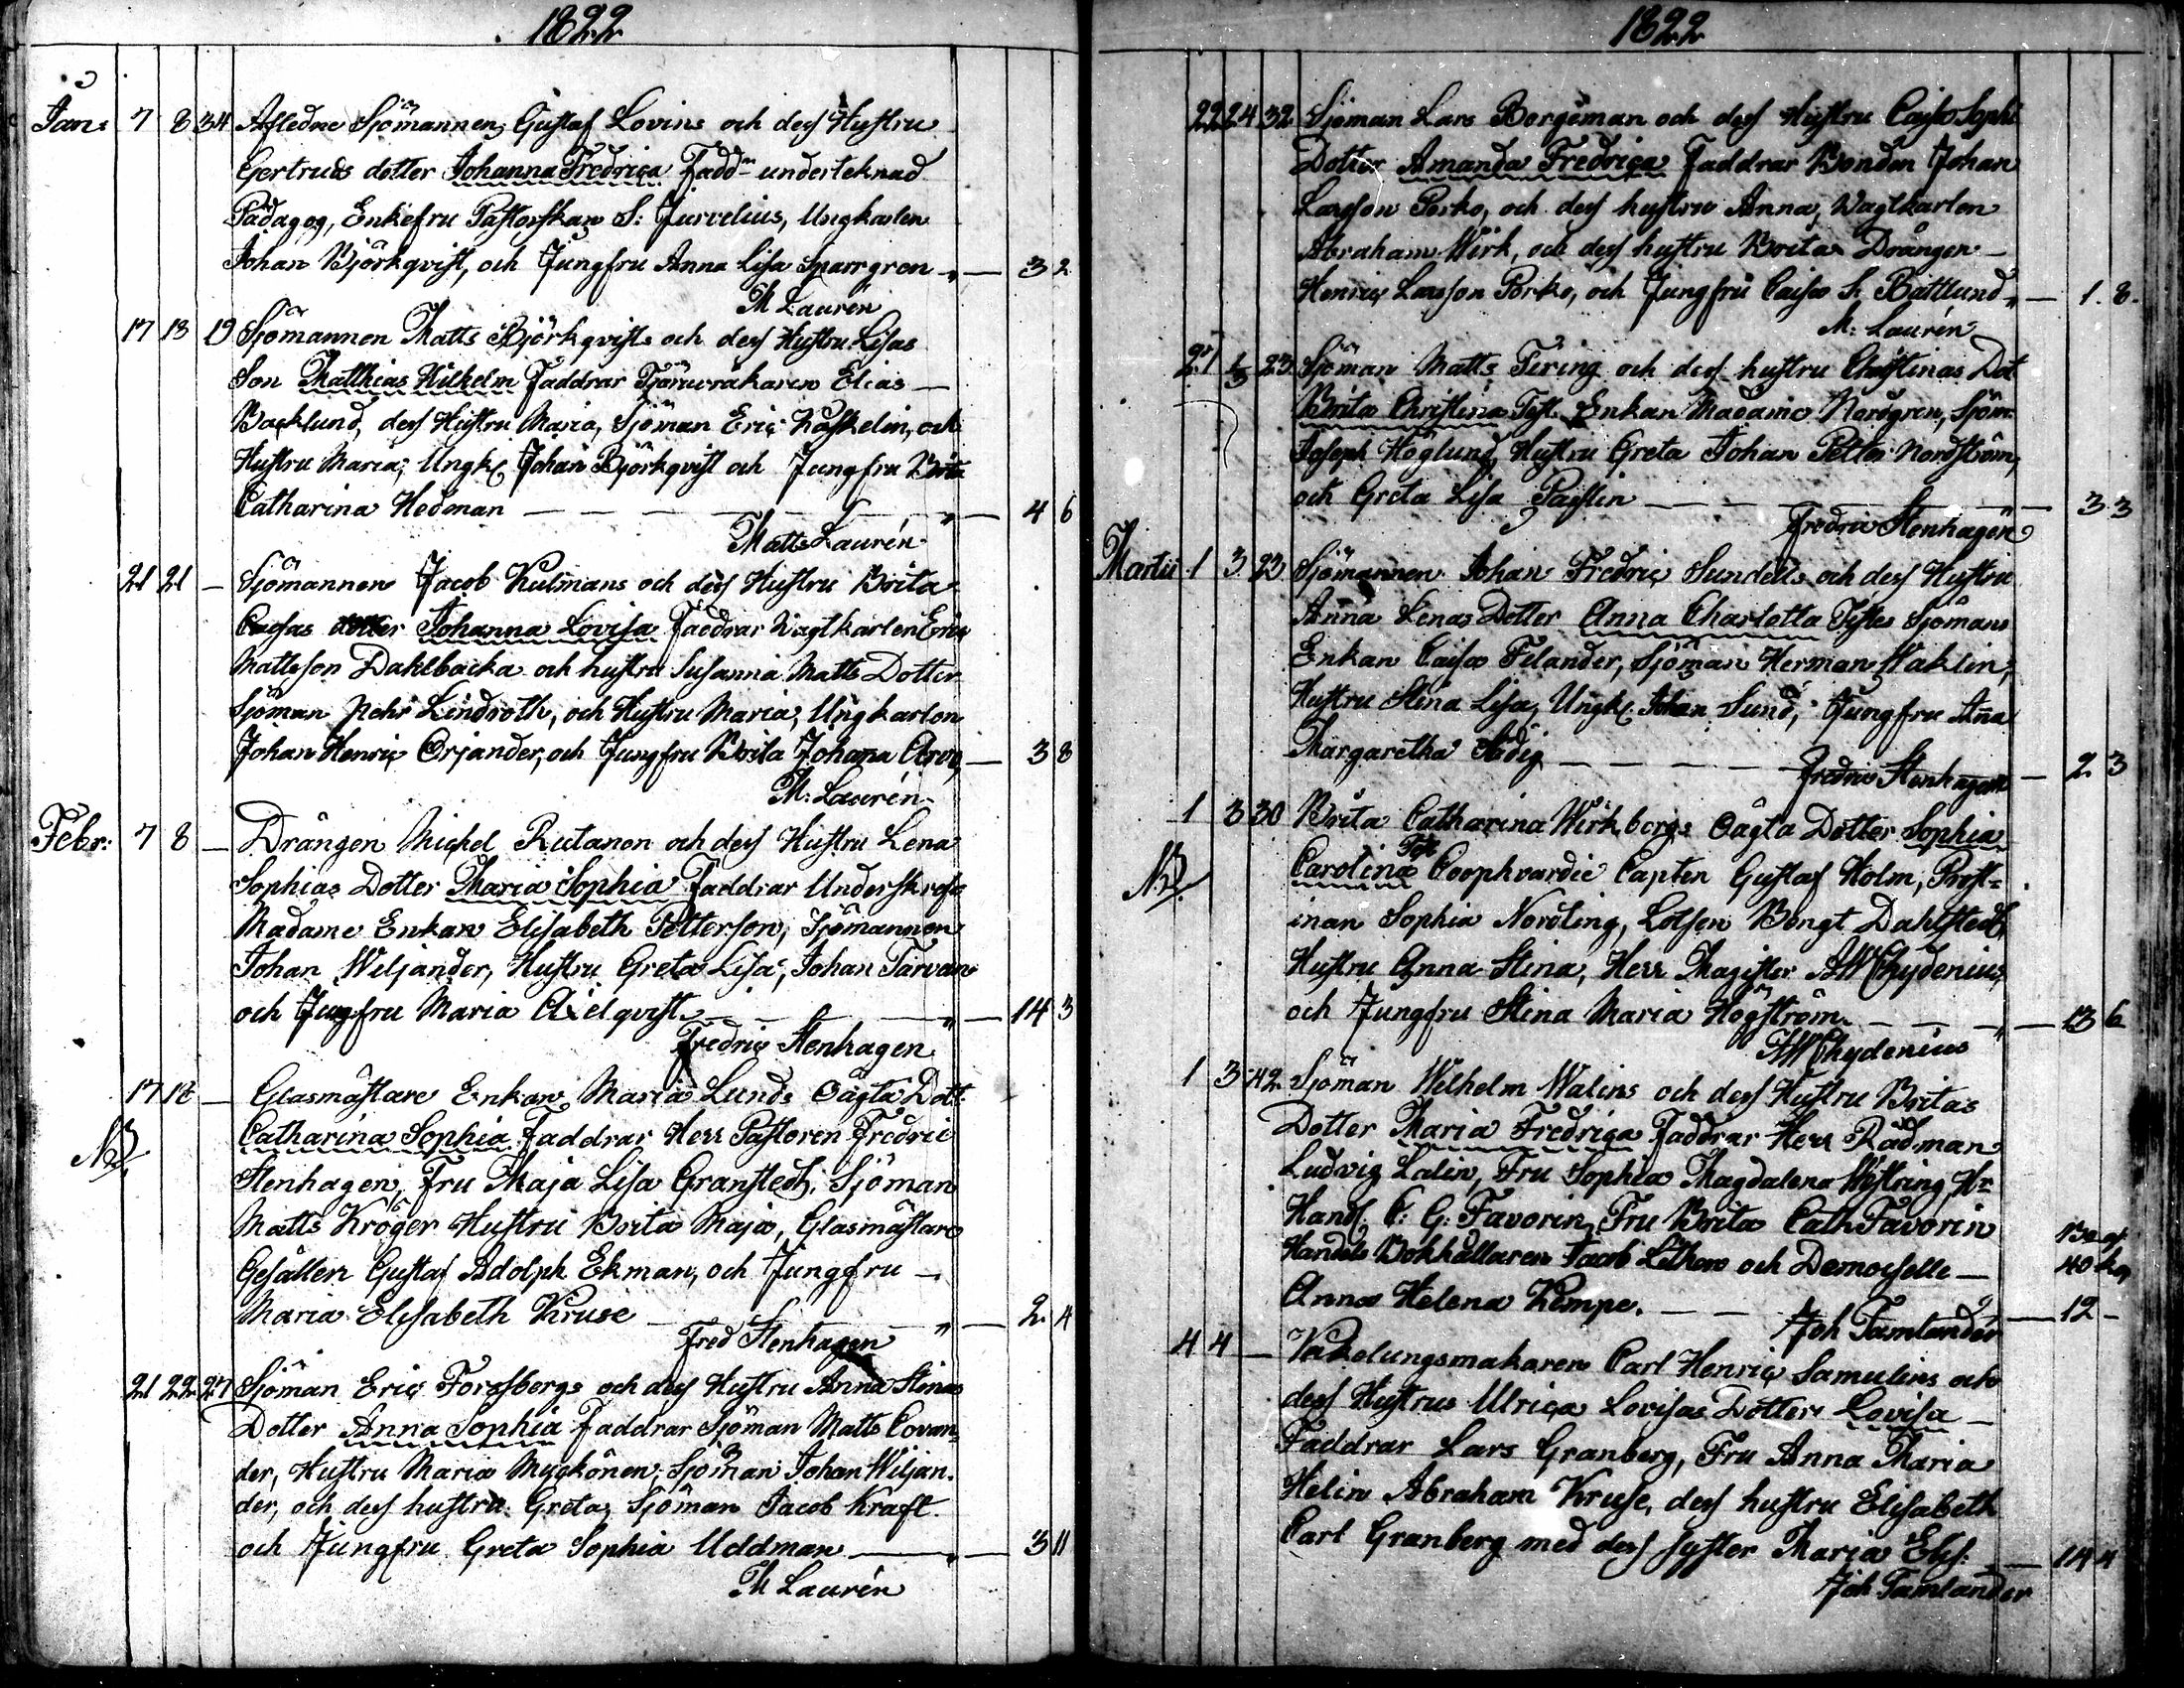 1822
Jan: 7 8 34 Afledne Sjömannen, Gustaf Lovins och dess Hustru
Gertruds dotter Johanna Fredrica Fadd= underteknad
Pädagog, Enkefru Pastorskan S: Jurvelius, Ungkarlen
Johan Björkqvist, och Jungfru Anna Lisa Sparrgren „ — 3 2
M Laurén
17 18 19 Sjömannen Matts Björkqvists och dess Hustru Lisas
Son Matthias Wilhelm Faddrar Tjäruvräkaren Elias —
Backlund, dess Hustru Maria, Sjöman Eric Kaskelin, och
Hustru Maria, Ungk: Johan Björkqvist och Jungfru Brita
Catharina Hedman — — — „ — 4 6
Matts Laurén
21 21 — Sjömannen Jacob Kulmans och dess Hustru Brita
Caisas dotter Johanna Lovisa Faddrar Wagtkarlen Eric
Mattsson Dahlbacka och hustru Susanna Matts Dotter
Sjöman Pehr Lindroth, och Hustru Maria, Ungkarlen
Johan Henric Orjander, och Jungfru Brita Johana — 3 8
M: Laurén
Febr: 7 8 — Drängen Michel Rutanen och dess Hustru Lena
Sophias Dotter Maria Sophia Faddrar
Madame Enkan Elisabeth Petterson, Sjömannen
Johan Weljander, Hustru Greta Lisa, Johan Tarvan
och Jungfru Maria Axelqvist — — „ — 14 3
Fredric Stenhagen
17 18 — Glasmästare Enkan Maria Lunds Oägta Dott
Catharina Sophia Faddrar Herr Pastoren Fredric
NB
Stenhagen, Fru Maja Lisa Granstedt, Sjöman
Matts Kröger Hustru Brita Maja, Glasmästare
Gesällen Gustaf Adolph Ekman, och Jungfru —
Maria Elisabeth Kruse — „ — 2 4
Fred Stenhagen
21 22 27 Sjöman Eric Forssbergs och dess Hustru Anna Stinas
Dotter Anna Sophia Faddrar Sjöman Matts Covan=
der, Hustru Maria Myckönen, Sjöman Johan Wiljan=
der, och dess hustru Greta, Sjöman Jacob Kraft
och Jungfru Greta Sophia Uddman — „ — 3 11
M Laurén
1822
22 24 32 Sjöman Lars Borgöman och dess Hustru Caisa Sophi
Dotter Amanda Fredrica Faddrar Bonden Johan
Larsson Porko, och dess hustru Anna, Wagtkarlen
Abraham Wirk, och dess hustru Brita Drängen —
Henric Larsson Porko, och Jungfru Caisa S. Battlund „ — 1. 8.
M: Laurén
27 1/3 23 Sjöman Matts Tering och dess hustru Christinas Dot
Brita Christina Test. Enkan Madame Nordgren, Sjöm
Joseph Höglund, Hustru Greta Johan Petter Nordström,
och Greta Lisa Paslin — — — 3 3
Fredric Stenhagen
Martii 1 3 23 Sjömannen Johan Fredric Sundells och dess Hustru
Anna Lenas Dotter Anna Charlotta Testes Sjömans
Enkan Caisa Felander, Sjöman Herman Waklin,
Hustru Stina Lisa, Ungk: Johan Sund, Jungfru Anna
Margaretha — — — 2 3
Fredric Stenhagen
1 3 30 Brita Catharina Wirkbergs Oägta Dotter Sophia
NB
Carolina Test Coophvardie Capten Gustaf Holm, Prost=
innan Sophia Nordling, Lotsen Bengt Dahlstedt,
Hustru Anna Stina, Herr Magister AWChydenius,
och Jungfru Stina Maria Högström — — „ — 13 6
AWChydenius
1 3 42 Sjöman Wilhelm Walins och dess Hustru Britas
Dotter Maria Fredrica Faddrar Herr Rådman
Ludvig Lalin, Fru Sophia Magdalena Westring, Hr
Handl. C: G: Favorin, Fru Brita Cath Favorin
Handels Bokhållaren Jacob Lithen och Demoiselle —
40 kop
Anna Helena Kempe. — — — 12 —
Joh Tamlander
4 4 — Kakelungsmakaren Carl Henric Samulins och
dess Hustrus Ulrica Lovisas Dotter Lovisa —
Faddrar Lars Granberg, Fru Anna Maria
Helin Abraham Kruse, dess hustru Elisabeth
Carl Granberg med dess syster Maria Elis: — 14 4
Joh Tamlander